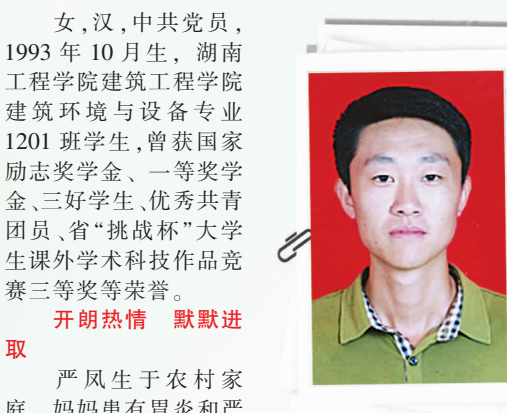 女,汉,中共党员,
1993 年 10 月生, 湖南
工程学院建筑工程学院
建筑环境与设备专业
1201 班学生,曾获国家
励志奖学金、一等奖学
金、三好学生、优秀共青
团员、省“挑战杯”大学
生课外学术科技作品竞
赛三等奖等荣誉。
开朗热情 默默进
取
严凤生于农村家
庭,妈妈患有胃炎和严